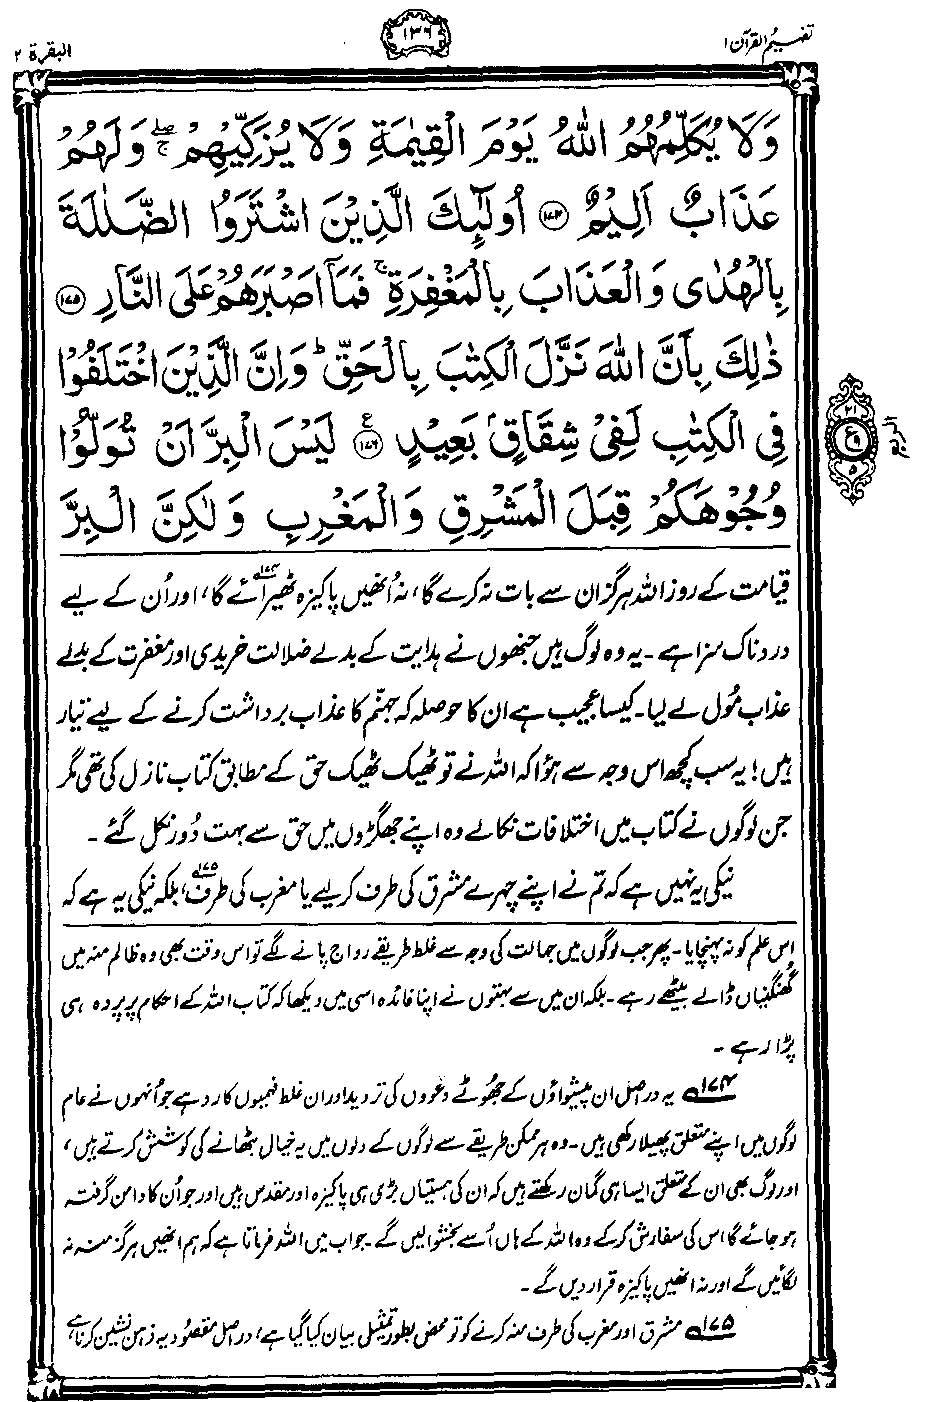 تفہیم القرآن ۱
۱۳۶
البقرۃ ۲
وَلَا يُكَلِّمُهُمُ اللّٰهُ يَوْمَ الْقِيٰمَةِ وَلَا يُزَكِّيْهِمْ ۖۚ وَلَهُمْ
عَذَابٌ اَلِيْمٌ ﴿۱۷۴﴾ اُولٰٓئِكَ الَّذِيْنَ اشْتَرَوُا الضَّلٰلَةَ
بِالْهُدٰى وَالْعَذَابَ بِالْمَغْفِرَةِ ۚ فَمَآ اَصْبَرَهُمْ عَلَى النَّارِ ﴿۱۷۵﴾
ذٰلِكَ بِاَنَّ اللّٰهَ نَزَّلَ الْكِتٰبَ بِالْحَقِّ ؕ وَاِنَّ الَّذِيْنَ اخْتَلَفُوْا
فِي الْكِتٰبِ لَفِيْ شِقَاقٍۢ بَعِيْدٍ ﴿۱۷۶﴾ ع لَيْسَ الْبِرَّ اَنْ تُوَلُّوْا
وُجُوْهَكُمْ قِبَلَ الْمَشْرِقِ وَالْمَغْرِبِ وَلٰكِنَّ الْبِرَّ
۲۱
ع
۵
الربع
قیامت کے روز اللہ ہرگز ان سے بات نہ کرے گا، نہ اُنھیں پاکیزہ ٹھیرائے گا،۱۷۴ اور اُن کے لیے
دردناک سزا ہے۔ یہ وہ لوگ ہیں جنھوں نے ہدایت کے بدلے ضلالت خریدی اور مغفرت کے بدلے
عذاب مُول لے لیا۔ کیسا عجیب ہے ان کا حوصلہ کہ جہنّم کا عذاب برداشت کرنے کے لیے تیار
ہیں! یہ سب کچھ اس وجہ سے ہوٴا کہ اللہ نے تو ٹھیک ٹھیک حق کے مطابق کتاب نازل کی تھی مگر
جن لوگوں نے کتاب میں اختلافات نکالے وہ اپنے جھگڑوں میں حق سے بہت دُور نکل گئے۔
نیکی یہ نہیں ہے کہ تم نے اپنے چہرے مشرق کی طرف کر لیے یا مغرب کی طرف،۱۷۵ بلکہ نیکی یہ ہے کہ
اِس علم کو نہ پہنچایا۔ پھر جب لوگوں میں جہالت کی وجہ سے غلط طریقے رواج پانے لگے تو اس وقت بھی وہ ظالم منہ میں
گھُنگنیاں ڈالے بیٹھے رہے۔ بلکہ ان میں سے بہتوں نے اپنا فائدہ اسی میں دیکھا کہ کتاب اللہ کے احکام پر پردہ ہی
پڑا رہے۔
۱۷۴ یہ دراصل ان پیشواؤں کے جھُوٹے دعووں کی تردید اور ان غلط فہمیوں کا رد ہے جو اُنہوں نے عام
لوگوں میں اپنے متعلق پھیلا رکھی ہیں۔ وہ ہر ممکن طریقے سے لوگوں کے دلوں میں یہ خیال بٹھانے کی کوشش کرتے ہیں،
اور لوگ بھی ان کے متعلق ایسا ہی گمان رکھتے ہیں کہ ان کی ہستیاں بڑی ہی پاکیزہ اور مقدس ہیں اور جو اُن کا دامن گرفتہ
ہو جائے گا اس کی سفارش کر کے وہ اللہ کے ہاں اُسے بخشوا لیں گے۔ جواب میں اللہ فرماتا ہے کہ ہم انھیں ہرگز منہ نہ
لگائیں گے اور نہ انھیں پاکیزہ قرار دیں گے۔
۱۷۵ مشرق اور مغرب کی طرف منہ کرنے کو تو محض بطور تمثیل بیان کیا گیا ہے، دراصل مقصُود یہ ذہن نشین کرنا ہے